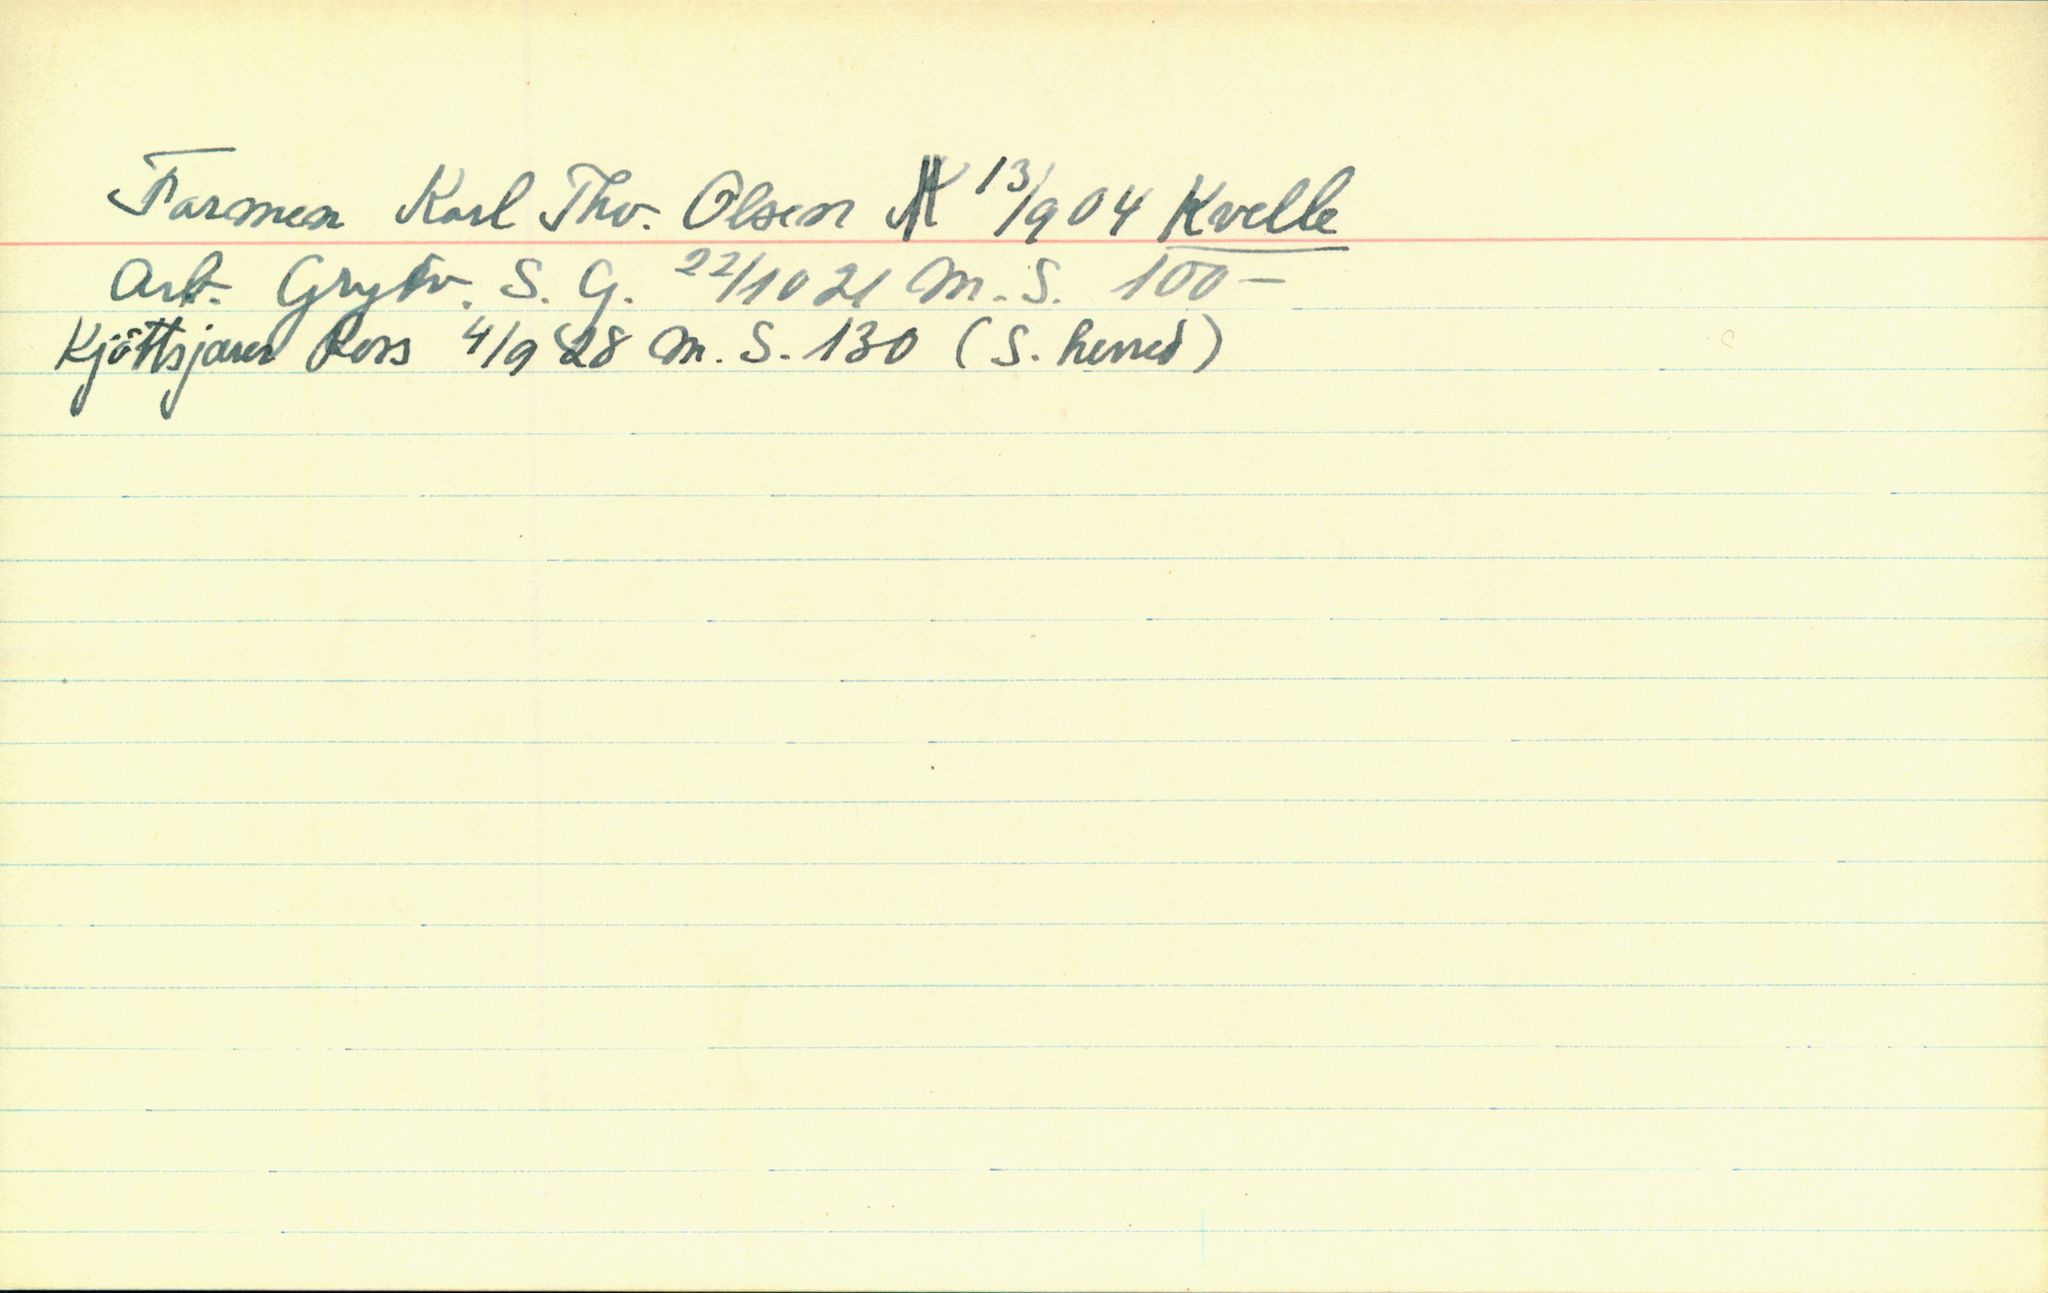 Farmen Karl Thv. Olsen 13/9 04 Kvelle
Arb. Grytv. S. G. 22/10 21 M. S. 100-
Kjöttsjauer Ross 4/9 28 M. S. 130 (S. herred)